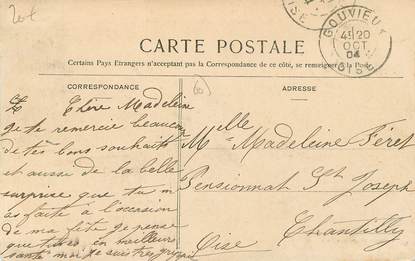 20t
OISE
GOUVIEUX
4E 20
OCT
04
OISE
CARTE POSTALE
Certains Pays Etrangers n'acceptant pas la Correspondance de ce côté, se renseigner à la Poste.
CORRESPONDANCE
ADRESSE
Chère Madeleine
je te remercie beaucoup
de tes bons souhaits
et aussi de la belle
surprise que tu m'
as faite à l'occasion
de ma fête je pense
que tu es en meilleure
santé moi je suis très grippé
Melle Madeleine Féret
Pensionnat St Joseph
Chantilly
Oise